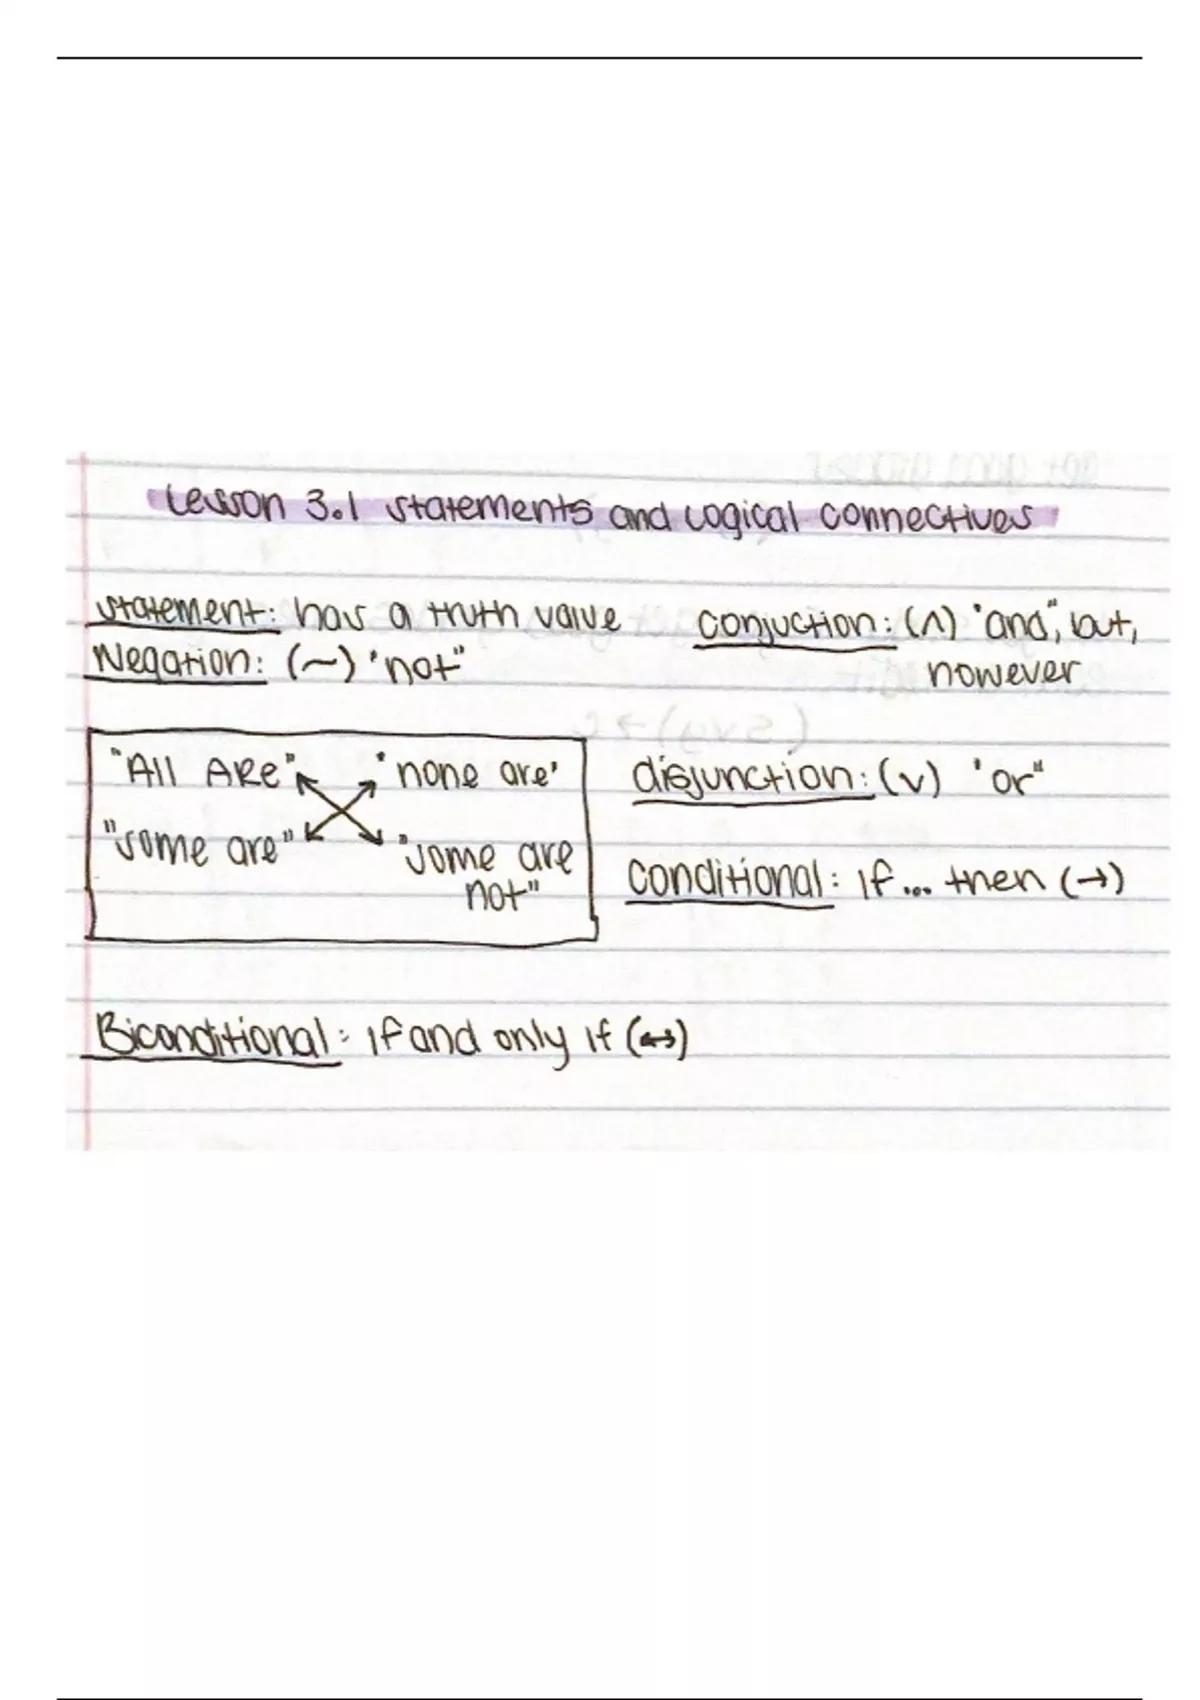 Lesson 3.1 statements and Logical connectives
statement: has a truth value
Negation: (~) "not"
conjuction: (∧) "and", but,
however
"All ARe" "none are"
"some are" "some are
not"
disjunction: (v) "or"
conditional: if... then (→)
Biconditional: if and only if (↔)